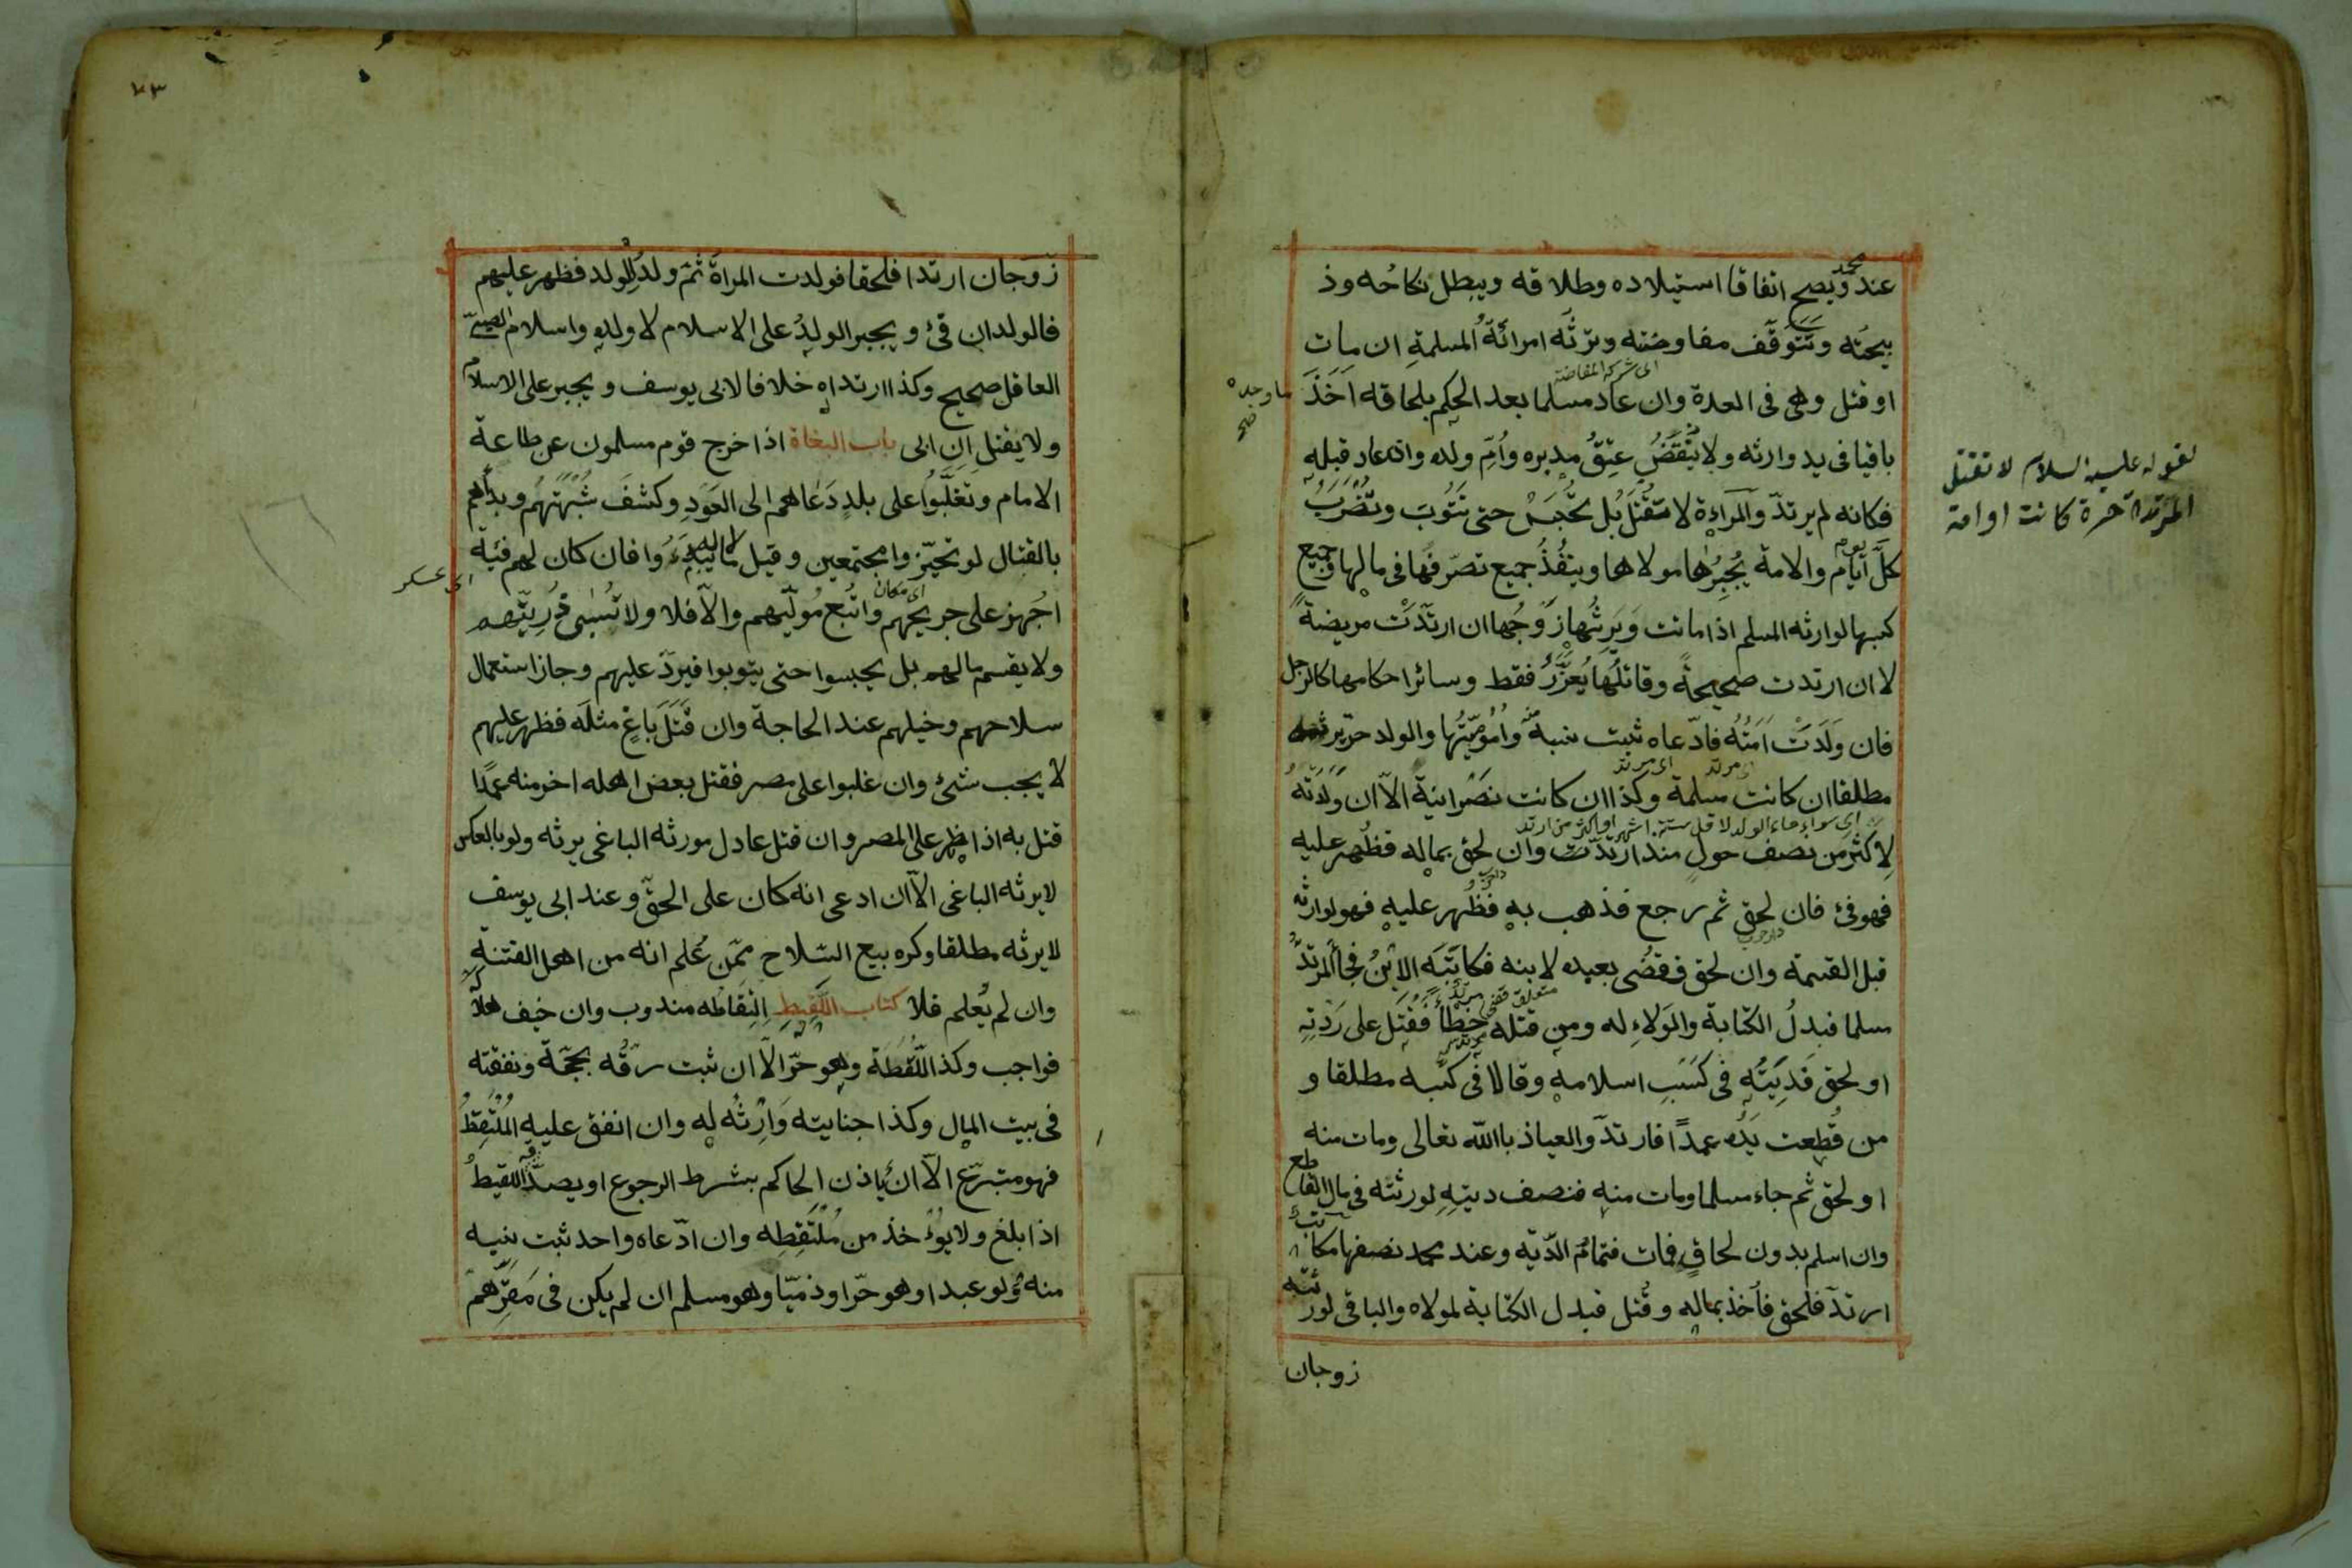 عند محمد ويصح اتفاقا استيلاده وطلاقه ويبطل نكاحه وذ
بيحته وتتوقف مفاوضته وترثه امرأته المسلمة ان مات
اى شركة المفاوضة
او قتل وهى فى العدة وان عاد مسلما بعد الحكم بلحاقه اخذ ما وجده
صح
باقيا فى يد وارثه ولا ينقض عتق مدبره وام ولده وان عاد قبله
لقوله عليه السلام لا تقتل
المرتدة حرة كانت او امة
فكانه لم يرتد والمراءة لا تقتل بل تحبس حتى تتوب وتضرب
كل ايام والامة يجبرها مولاها وينفذ جميع تصرفها فى مالها وجميع
كسبها لوارثه المسلم اذا ماتت ويرثها زوجها ان ارتدت مريضة
لا ان ارتدت صحيحة وقاتلها يعزر فقط وسائر احكامها كالرجل
فان ولدت امته فادعاه ثبت نسبه منه واموميتها والولد حر يرثه
مطلقا ان كانت مسلمة وكذا ان كانت نصرانية الا ان ولدته
اى سواء جاء الولد لاقل ستة اشهر او اكثر من ارتد
لاكثر من نصف حول منذ ارتدت وان لحق بماله فظهر عليه
فهو فئ فان لحق ثم رجع فذهب به فظهر عليه فهو لوارثه
قبل القسمة وان لحق فقضى بعبده لابنه فكاتبه الابن فجاء المرتد
مسلما فبدل الكتابة والولاء له ومن قتله خطأ فقتل على ردته
او لحق فديته فى كسب اسلامه وقالا فى كسبه مطلقا و
من قطعت يده عمدا فارتد والعياذ باالله تعالى ومات منه
او لحق ثم جاء مسلما ومات منه فنصف ديته لورثته فى مال القاطع
وان اسلم بدون لحاق فمات فتمام الدية وعند محمد نصفها مكاتب
ارتد فلحق فأخذ بماله وقتل فبدل الكتابة لمولاه والباقى لورثته
زوجان
٧٣
زوجان ارتدا فلحقا فولدت المراة ثم ولد للولد فظهر عليهم
فالولدان فئ ويجبر الولد على الاسلام لا ولده واسلام الصبى
العاقل صحيح وكذا ارتداه خلافا لابى يوسف ويجبر على الاسلام
ولا يقتل ان ابى باب البغاة اذا خرج قوم مسلمون عن طاعة
الامام وتغلبوا على بلد دعاهم الى العود وكشف شبهتهم وبدأهم
بالقتال لو تحيزوا مجتمعين وقيل لا ما لم يبدءوا فان كان لهم فئة
اى عسكر
اى مكان
اجهز على جريحهم واتبع موليهم والا فلا ولا تسبى ذريتهم
ولا يقسم مالهم بل يحبسوا حتى يتوبوا فيرد عليهم وجاز استعمال
سلاحهم وخيلهم عند الحاجة وان قتل باغ مثله فظهر عليهم
لا يجب شئ وان غلبوا على مصر فقتل بعض اهله اخر منه عمدا
قتل به اذا ظهر على المصر وان قتل عادل مورثه الباغى يرثه ولو بالعكس
لا يرثه الباغى الا ان ادعى انه كان على الحق وعند ابى يوسف
لا يرثه مطلقا وكره بيع السلاح ممن علم انه من اهل الفتنة
وان لم يعلم فلا كتاب اللقيط التقاطه مندوب وان خيف هلاكه
فواجب وكذا اللقطة وهو حر الا ان ثبت رقه بحجة ونفقته
فى بيت المال وكذا جنايته وارثه له وان انفق عليه الملتقط
فهو متبرع الا ان ياذن الحاكم بشرط الرجوع او يصدقه اللقيط
اذا بلغ ولا يوءخذ من ملتقطه وان ادعاه واحد ثبت نسبه
منه ولو عبدا وهو حر او ذميا وهو مسلم ان لم يكن فى مقرهم